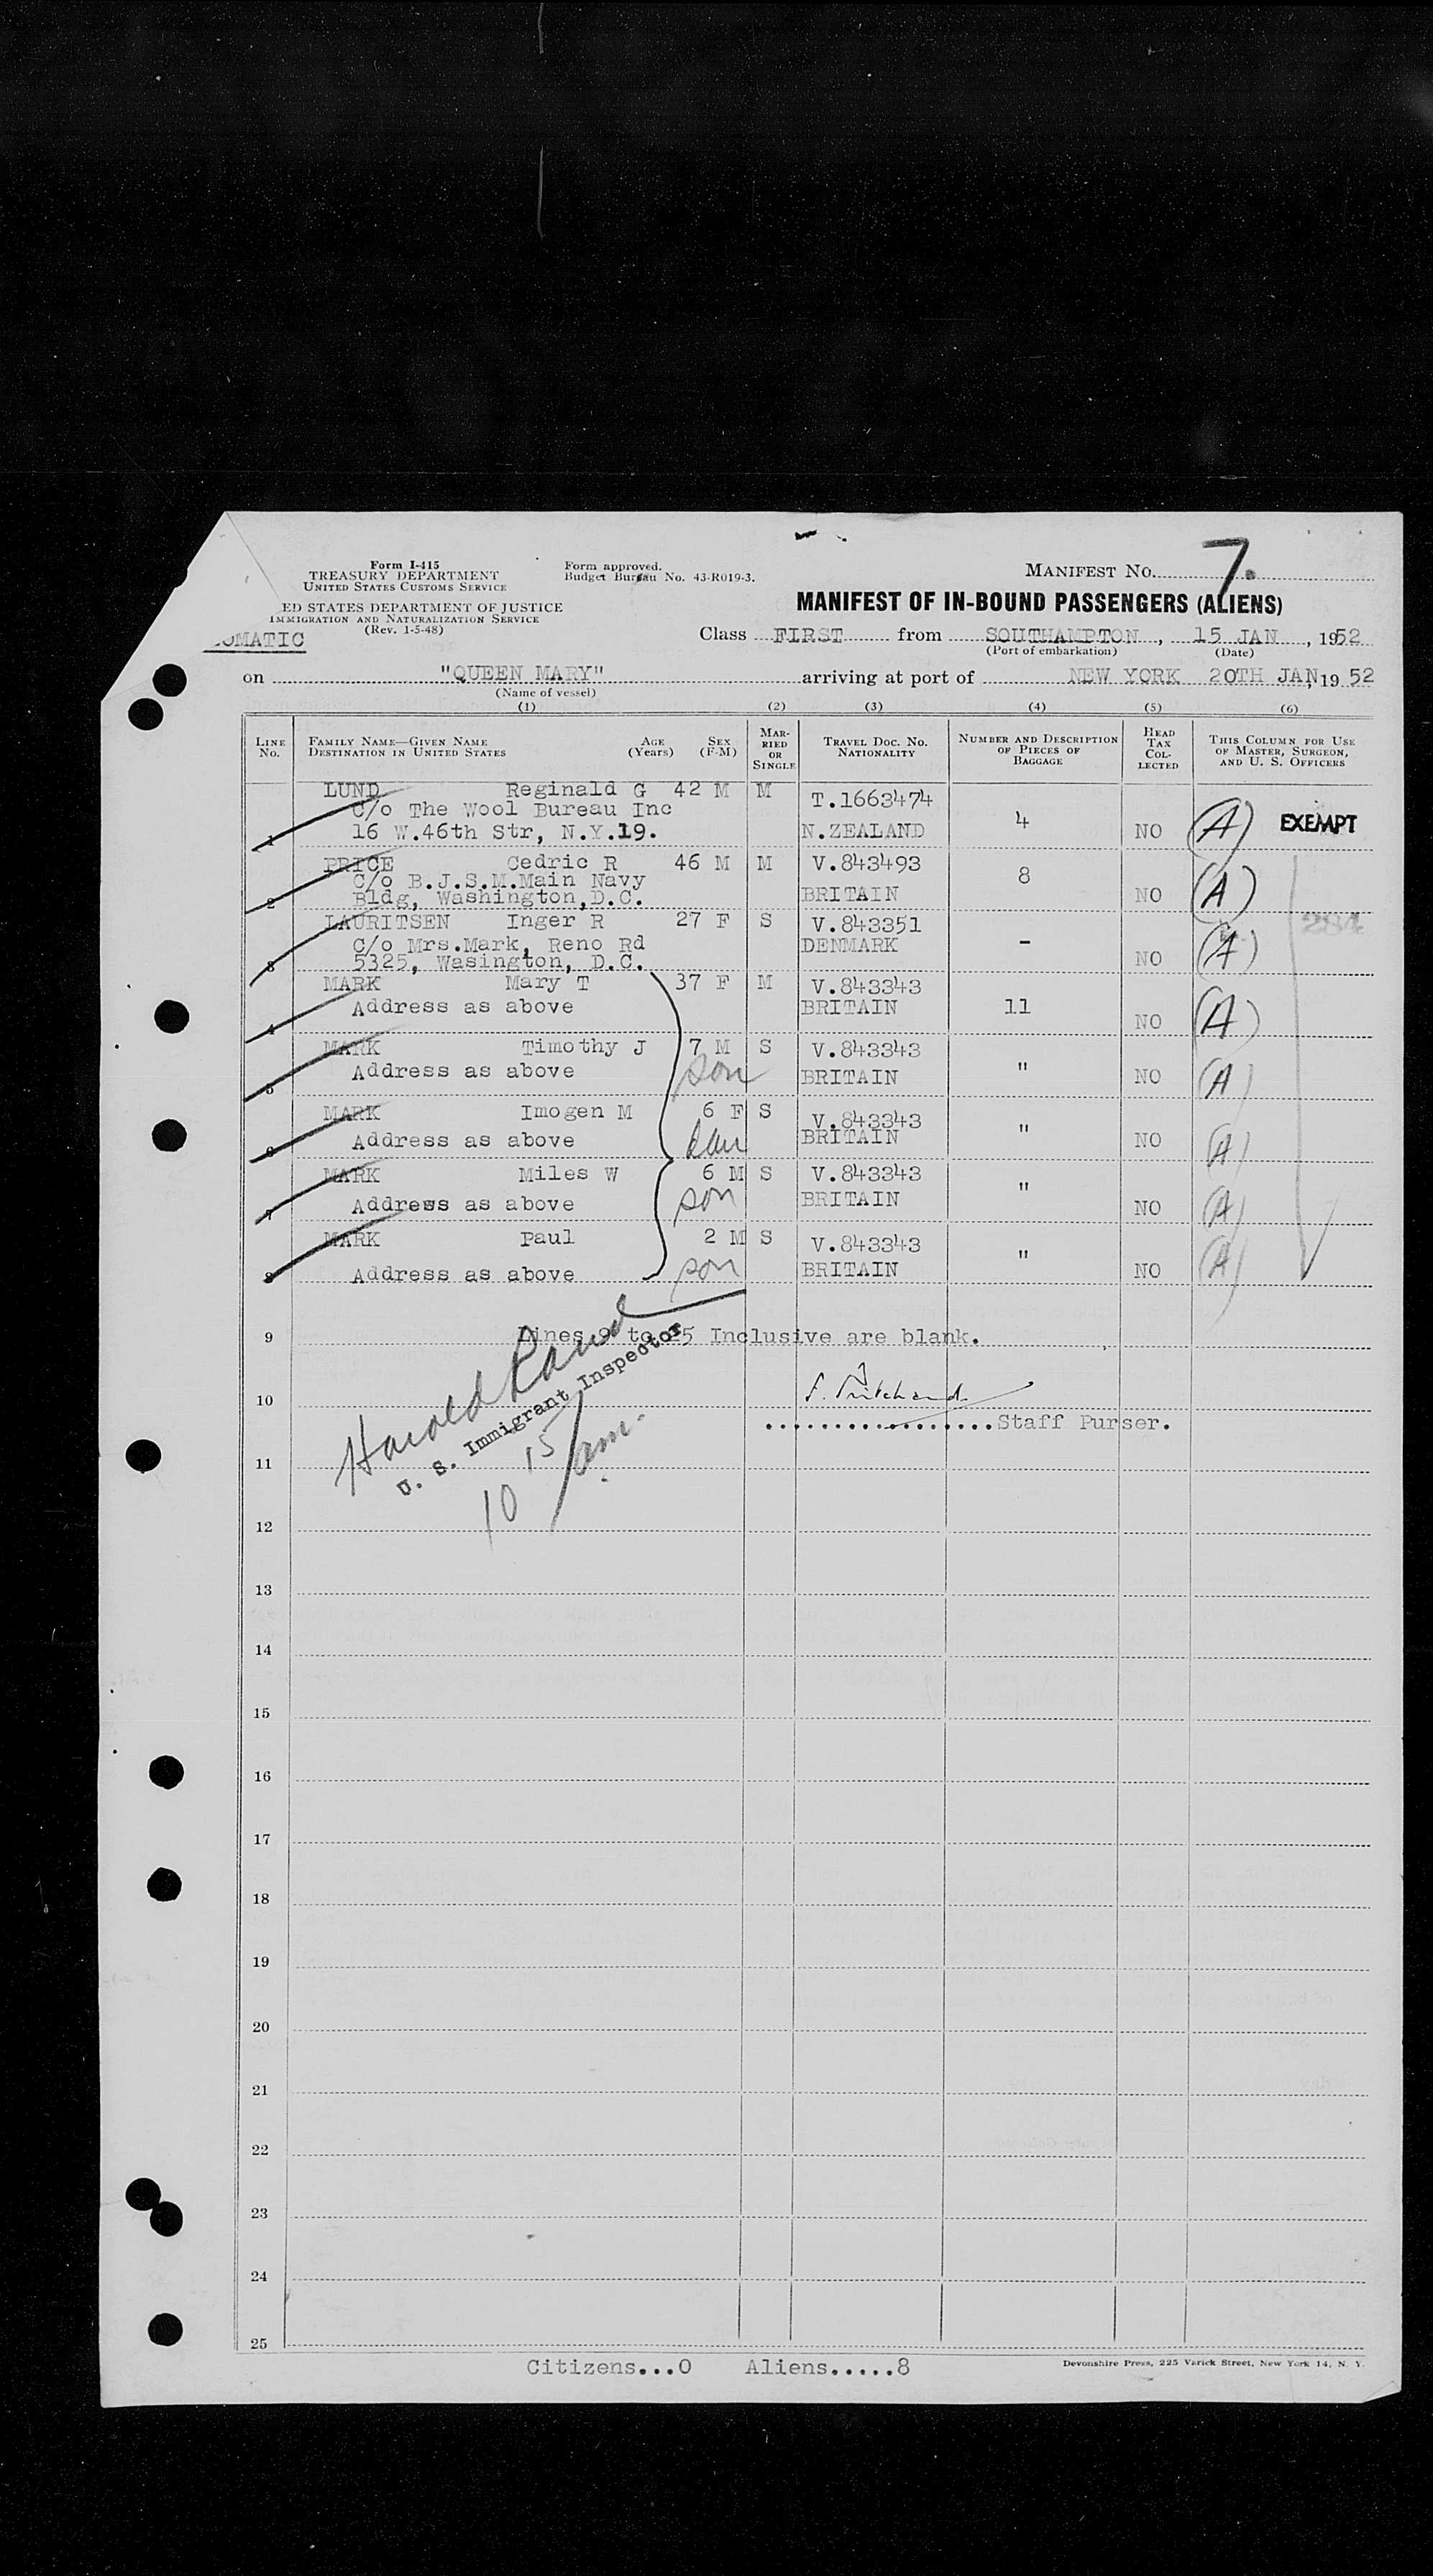 Form I-415
TREASURY DEPARTMENT
UNITED STATES CUSTOMS SERVICE
Form approved.
Budget Bureau No. 43-R019-3.
MANIFEST NO. 7.
ED STATES DEPARTMENT OF JUSTICE
IMMIGRATION AND NATURALIZATION SERVICE
(Rev. 1-5-48)
OMATIC
MANIFEST OF IN-BOUND PASSENGERS (ALIENS)
Class FIRST from SOUTHAMPTON, 15 JAN, 1952
(Port of embarkation) (Date)
on "QUEEN MARY" arriving at port of NEW YORK 20TH JAN, 1952
(Name of vessel)
(1) (2) (3) (4) (5) (6)
LINE No. FAMILY NAME—GIVEN NAME DESTINATION IN UNITED STATES AGE (Years) SEX (F-M) MARRIED OR SINGLE TRAVEL DOC. NO. NATIONALITY NUMBER AND DESCRIPTION OF PIECES OF BAGGAGE HEAD TAX COLLECTED THIS COLUMN FOR USE OF MASTER, SURGEON, AND U. S. OFFICERS
1 LUND Reginald G 42 M M T.1663474 4 NO (A) EXEMPT
C/o The Wool Bureau Inc
16 W.46th Str, N.Y.19. N.ZEALAND
2 PRICE Cedric R 46 M M V.843493 8 NO (A)
C/o B.J.S.M.Main Navy
Bldg, Washington,D.C. BRITAIN
3 LAURITSEN Inger R 27 F S V.843351 - NO (A)
C/o Mrs.Mark, Reno Rd DENMARK
5325, Wasington, D.C.
4 MARK Mary T 37 F M V.843343 11 NO (A)
Address as above BRITAIN
5 MARK Timothy J 7 M S V.843343 " NO (A)
Address as above son BRITAIN
6 MARK Imogen M 6 F S V.843343 " NO (A)
Address as above dau BRITAIN
7 MARK Miles W 6 M S V.843343 " NO (A)
Address as above son BRITAIN
8 MARK Paul 2 M S V.843343 " NO (A)
Address as above son BRITAIN
9 Lines 9 to 25 Inclusive are blank.
Harold Rand
U. S. Immigrant Inspector
10 15/am.
10 F. Pritchard
Staff Purser.
11
12
13
14
15
16
17
18
19
20
21
22
23
24
25
Citizens...0 Aliens.....8
Devonshire Press, 225 Varick Street, New York 14, N. Y.